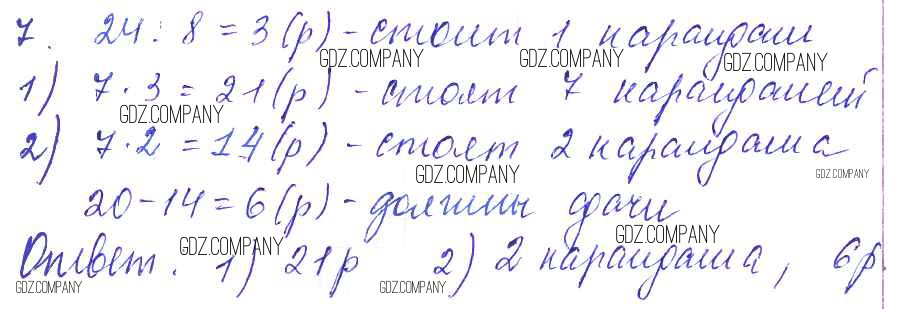 7. 24 : 8 = 3 (р) - стоит 1 карандаш
GDZ.COMPANY GDZ.COMPANY GDZ.COMPANY
1) 7 · 3 = 21 (р) - стоят 7 карандашей
GDZ.COMPANY
2) 7 · 2 = 14 (р) - стоят 2 карандаша
GDZ.COMPANY GDZ.COMPANY
20 - 14 = 6 (р) - должны дачи
GDZ.COMPANY GDZ.COMPANY
Ответ: 1) 21р 2) 2 карандаша, 6р.
GDZ.COMPANY GDZ.COMPANY